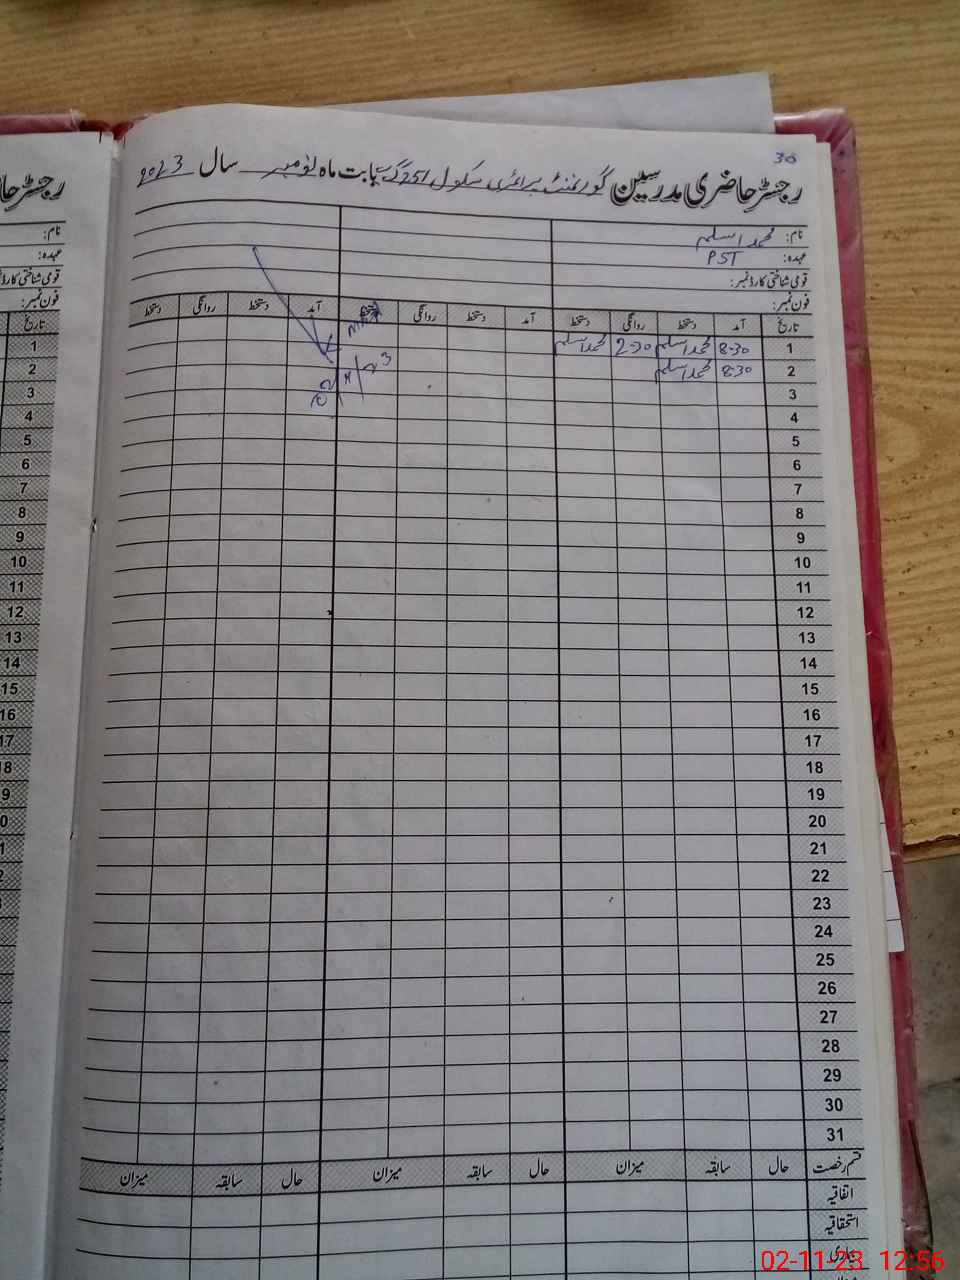 30
رجسٹر حاضری مدرسین گورنمنٹ پرائمری سکول 251 گ ب بابت ماہ نومبر سال 2023
نام: محمد اسلم
عہدہ: PST
قومی شناختی کارڈ نمبر:
فون نمبر:
تاریخ آمد دستخط روانگی دستخط آمد دستخط روانگی دستخط آمد دستخط روانگی دستخط
1 8-30 محمد اسلم 2-30 محمد اسلم
2 8-30 محمد اسلم
3
4
5
6
7
8
9
10
11
12
13
14
15
16
17
18
19
20
21
22
23
24
25
26
27
28
29
30
31
قسم رخصت حال سابقہ میزان حال سابقہ میزان حال سابقہ میزان
اتفاقیہ
استحقاقیہ
بیماری
رجسٹر حا
نام:
عہدہ:
قومی شناختی کارڈ
فون نمبر:
تاریخ
1
2
3
4
5
6
7
8
9
10
11
12
13
14
15
16
17
18
02-11-23 12:56